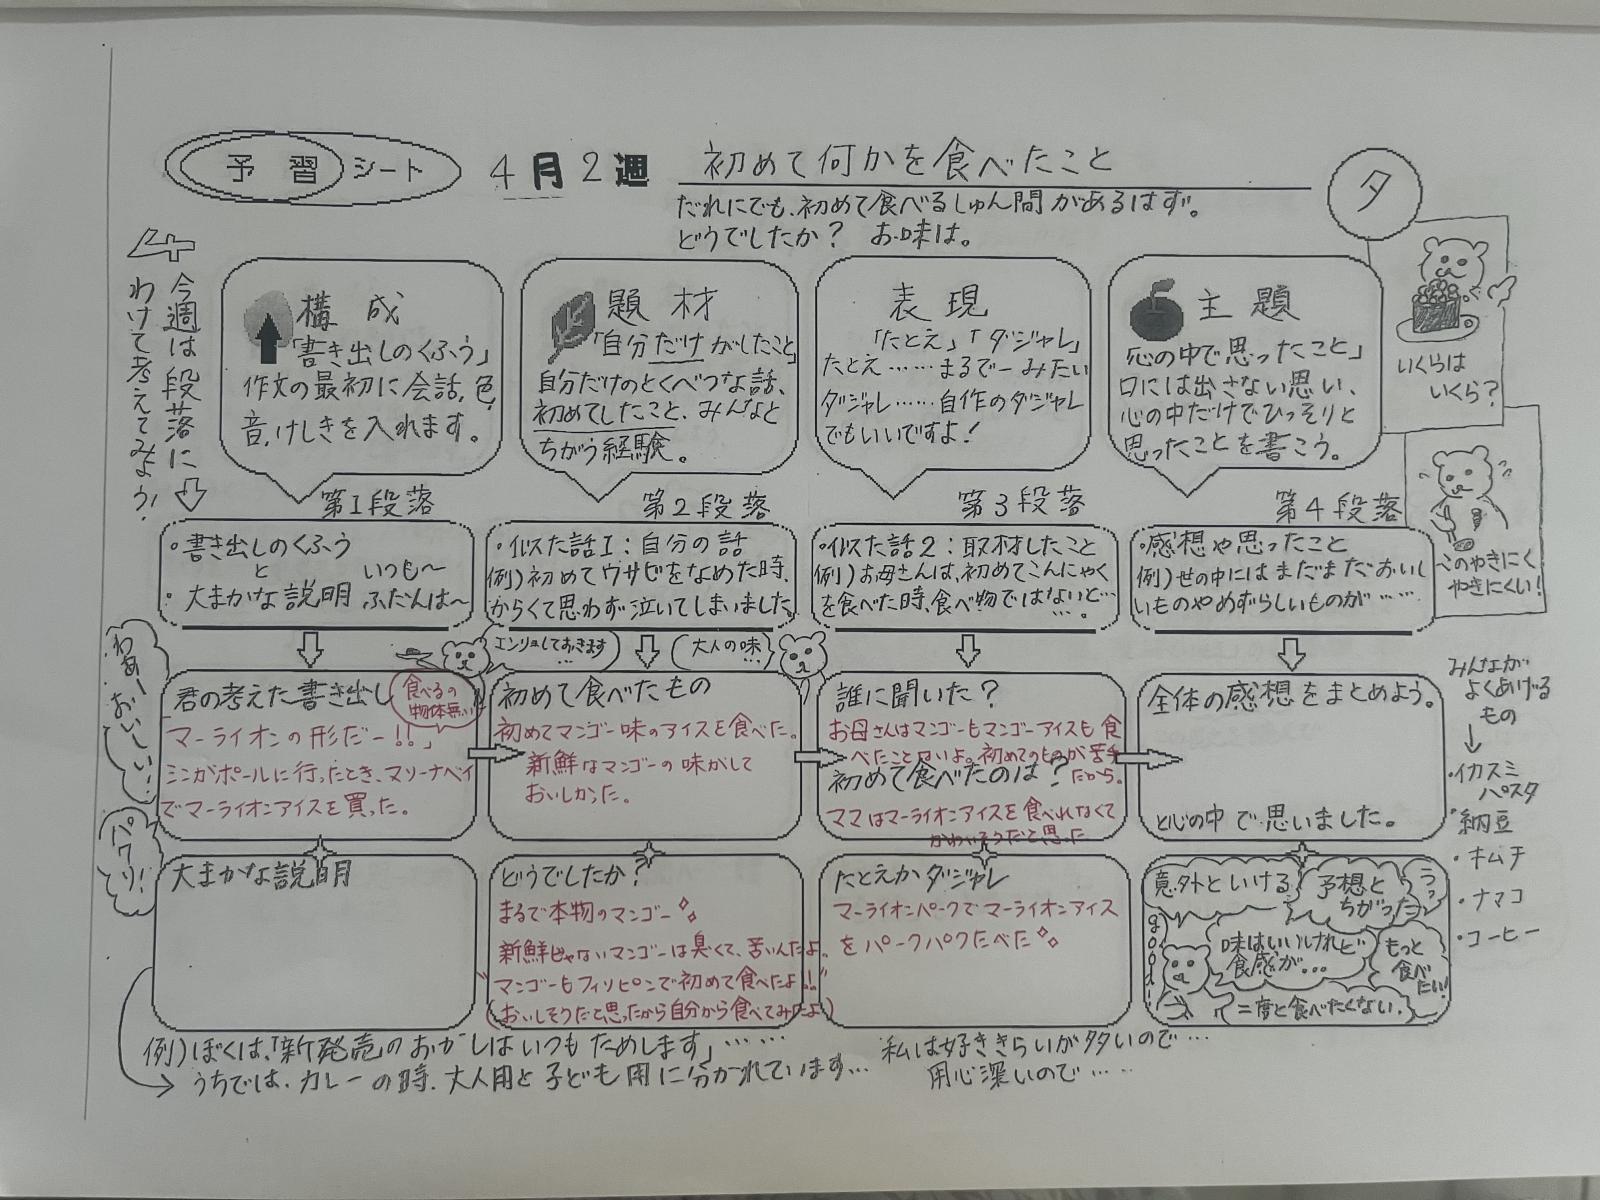 予習シート
4月2週
初めて何かを食べたこと
夕
だれにでも、初めて食べるしゅん間があるはず。
どうでしたか？ お味は。
今週は段落に
わけて考えてみよう！
構成
「書き出しのくふう」
作文の最初に会話,色,
音,けしきを入れます。
題材
「自分だけがしたこと」
自分だけのとくべつな話、
初めてしたこと、みんなと
ちがう経験。
表現
「たとえ」「ダジャレ」
たとえ……まるで－みたい
ダジャレ……自作のダジャレ
でもいいですよ！
主題
「心の中で思ったこと」
口には出さない思い、
心の中だけでひっそりと
思ったことを書こう。
いくらは
いくら？
このやきにく
やきにくい！
第1段落
・書き出しのくふう
と
・大まかな説明
いつも～
ふだんは～
第2段落
・似た話1：自分の話
例）初めてワサビをなめた時、
からくて思わず泣いてしまいました。
第3段落
・似た話2：取材したこと
例）お母さんは、初めてこんにゃく
を食べた時、食べ物ではないと…
第4段落
・感想や思ったこと
例）世の中にはまだまだおいし
いものやめずらしいものが……
わあーおいしい！
パクリ！
エンリョしておきます
…
大人の味
…
君の考えた書き出し
食べるの
物体無い
「マーライオンの形だー!!」
シンガポールに行ったとき、マリーナベイ
でマーライオンアイスを買った。
初めて食べたもの
初めてマンゴー味のアイスを食べた。
新鮮なマンゴーの味がして
おいしかった。
誰に聞いた？
お母さんはマンゴーもマンゴーアイスも食
べたことないよ。初めてのものが苦手
だから。
初めて食べたのは？
ママはマーライオンアイスを食べれなくて
かわいそうだと思った
全体の感想をまとめよう。
と心の中で思いました。
みんなが
よくあげる
もの
・イカスミ
パスタ
・納豆
・キムチ
・ナマコ
・コーヒー
大まかな説明
どうでしたか？
まるで本物のマンゴー
新鮮じゃないマンゴーは臭くて、苦いんだよ。
"マンゴーもフィリピンで初めて食べたよ!!"
(おいしそうだと思ったから自分から食べてみたよ)
たとえかダジャレ
マーライオンパークでマーライオンアイス
をパークパクたべた
意外といける
予想と
ちがった
うっ
good!
味はいいけれど
食感が…
もっと
食べたい!
二度と食べたくない.
例）ぼくは、「新発売のおかしはいつもためします」……
うちでは、カレーの時、大人用と子ども用に分かれています…
私は好ききらいが多いので…
用心深いので……